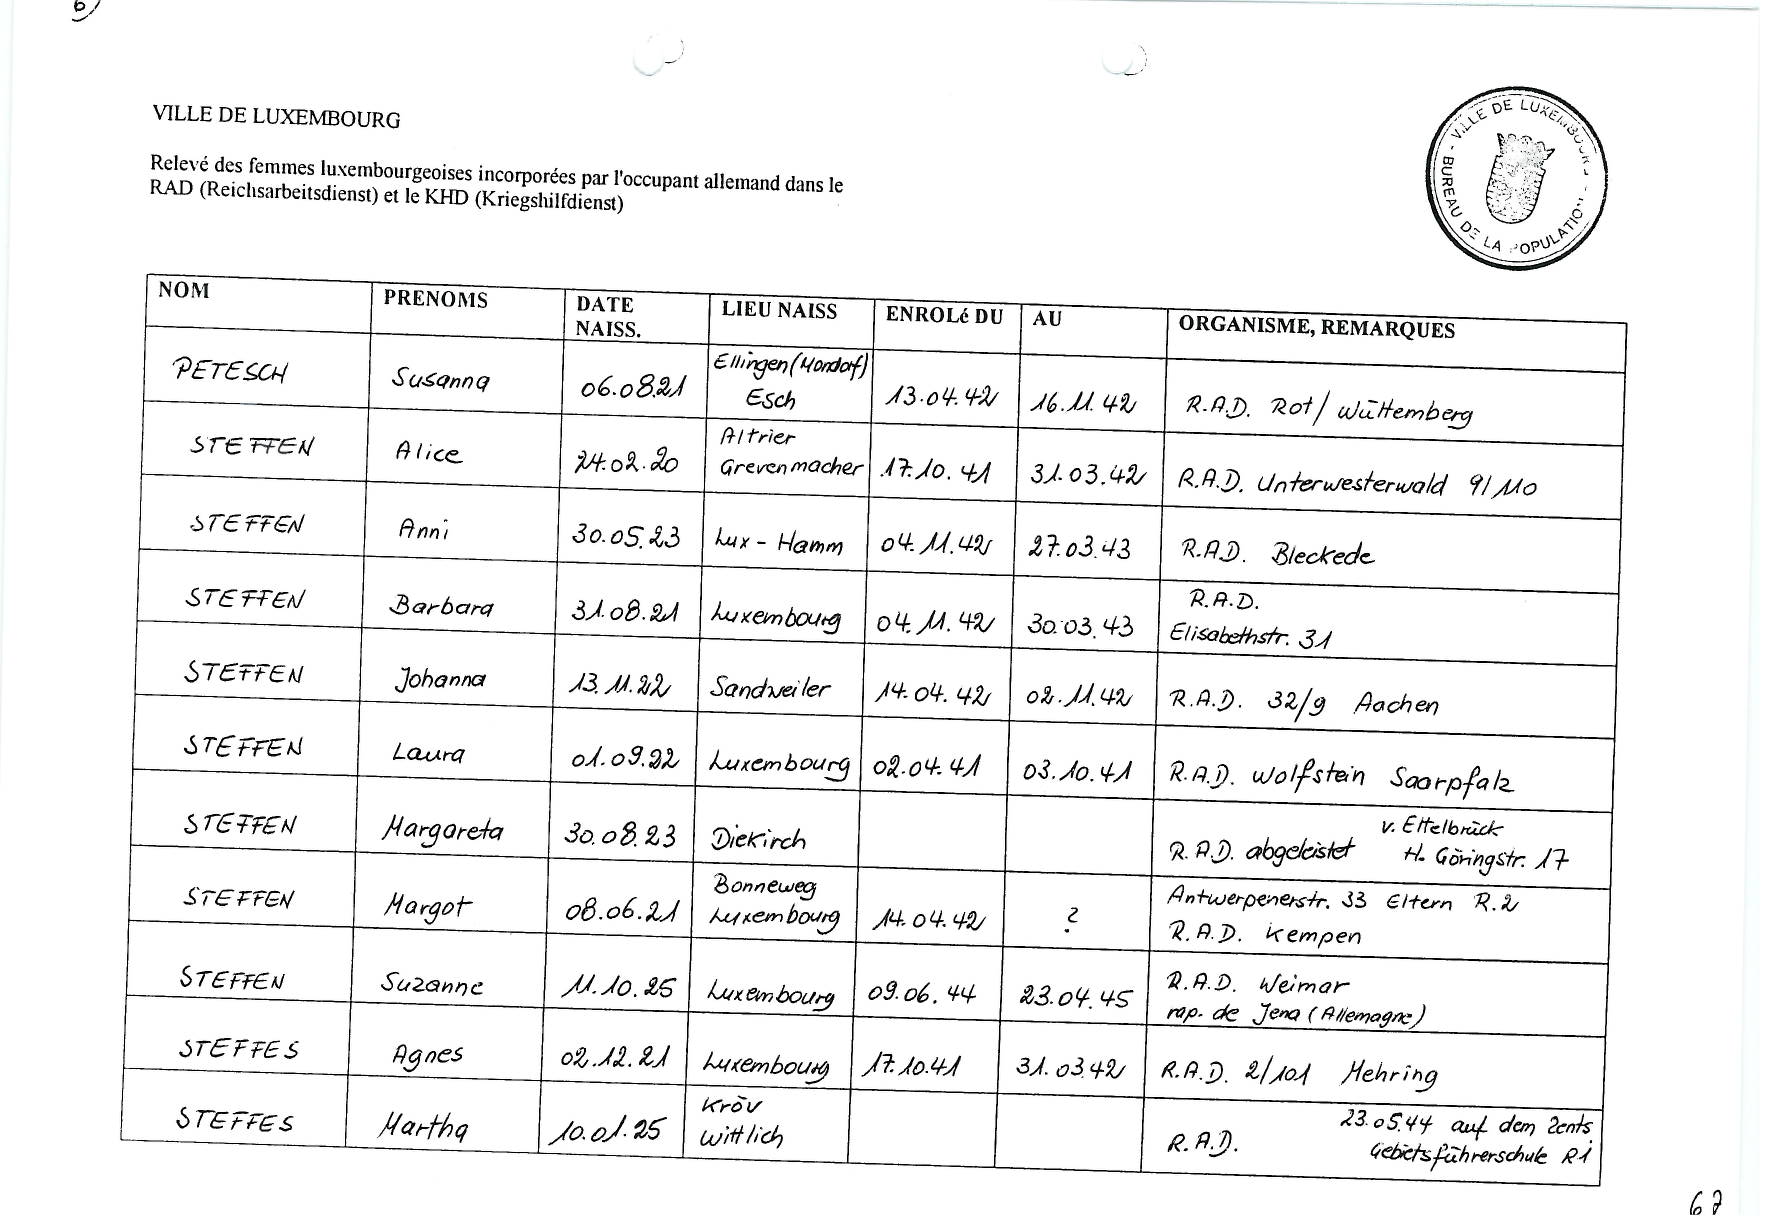 6)
VILLE DE LUXEMBOURG
VILLE DE LUXEMBOURG - BUREAU DE LA POPULATION -
Relevé des femmes luxembourgeoises incorporées par l'occupant allemand dans le
RAD (Reichsarbeitsdienst) et le KHD (Kriegshilfdienst)
NOM PRENOMS DATE NAISS. LIEU NAISS ENROLé DU AU ORGANISME, REMARQUES
PETESCH Susanna 06.08.21 Ellingen (Mondorf) Esch 13.04.42 16.11.42 R.A.D. Rot / Württemberg
STEFFEN Alice 24.02.20 Altrier Grevenmacher 17.10.41 31.03.42 R.A.D. Unterwesterwald 9/110
STEFFEN Anni 30.05.23 Lux - Hamm 04.11.42 27.03.43 R.A.D. Bleckede
STEFFEN Barbara 31.08.21 Luxembourg 04.11.42 30.03.43 R.A.D. Elisabethstr. 31
STEFFEN Johanna 13.11.22 Sandweiler 14.04.42 02.11.42 R.A.D. 32/9 Aachen
STEFFEN Laura 01.09.22 Luxembourg 02.04.41 03.10.41 R.A.D. Wolfstein Saarpfalz
STEFFEN Margareta 30.08.23 Diekirch R.A.D. abgeleistet v. Ettelbrück H. Göringstr. 17
STEFFEN Margot 08.06.21 Bonneweg Luxembourg 14.04.42 ? Antwerpenerstr. 33 Eltern R.2 R.A.D. Kempen
STEFFEN Suzanne 11.10.25 Luxembourg 09.06.44 23.04.45 R.A.D. Weimar rap. de Jena (Allemagne)
STEFFES Agnes 02.12.21 Luxembourg 17.10.41 31.03.42 R.A.D. 2/101 Mehring
STEFFES Martha 10.01.25 Kröv Wittlich R.A.D. 23.05.44 auf dem Gebietsführerschule
67